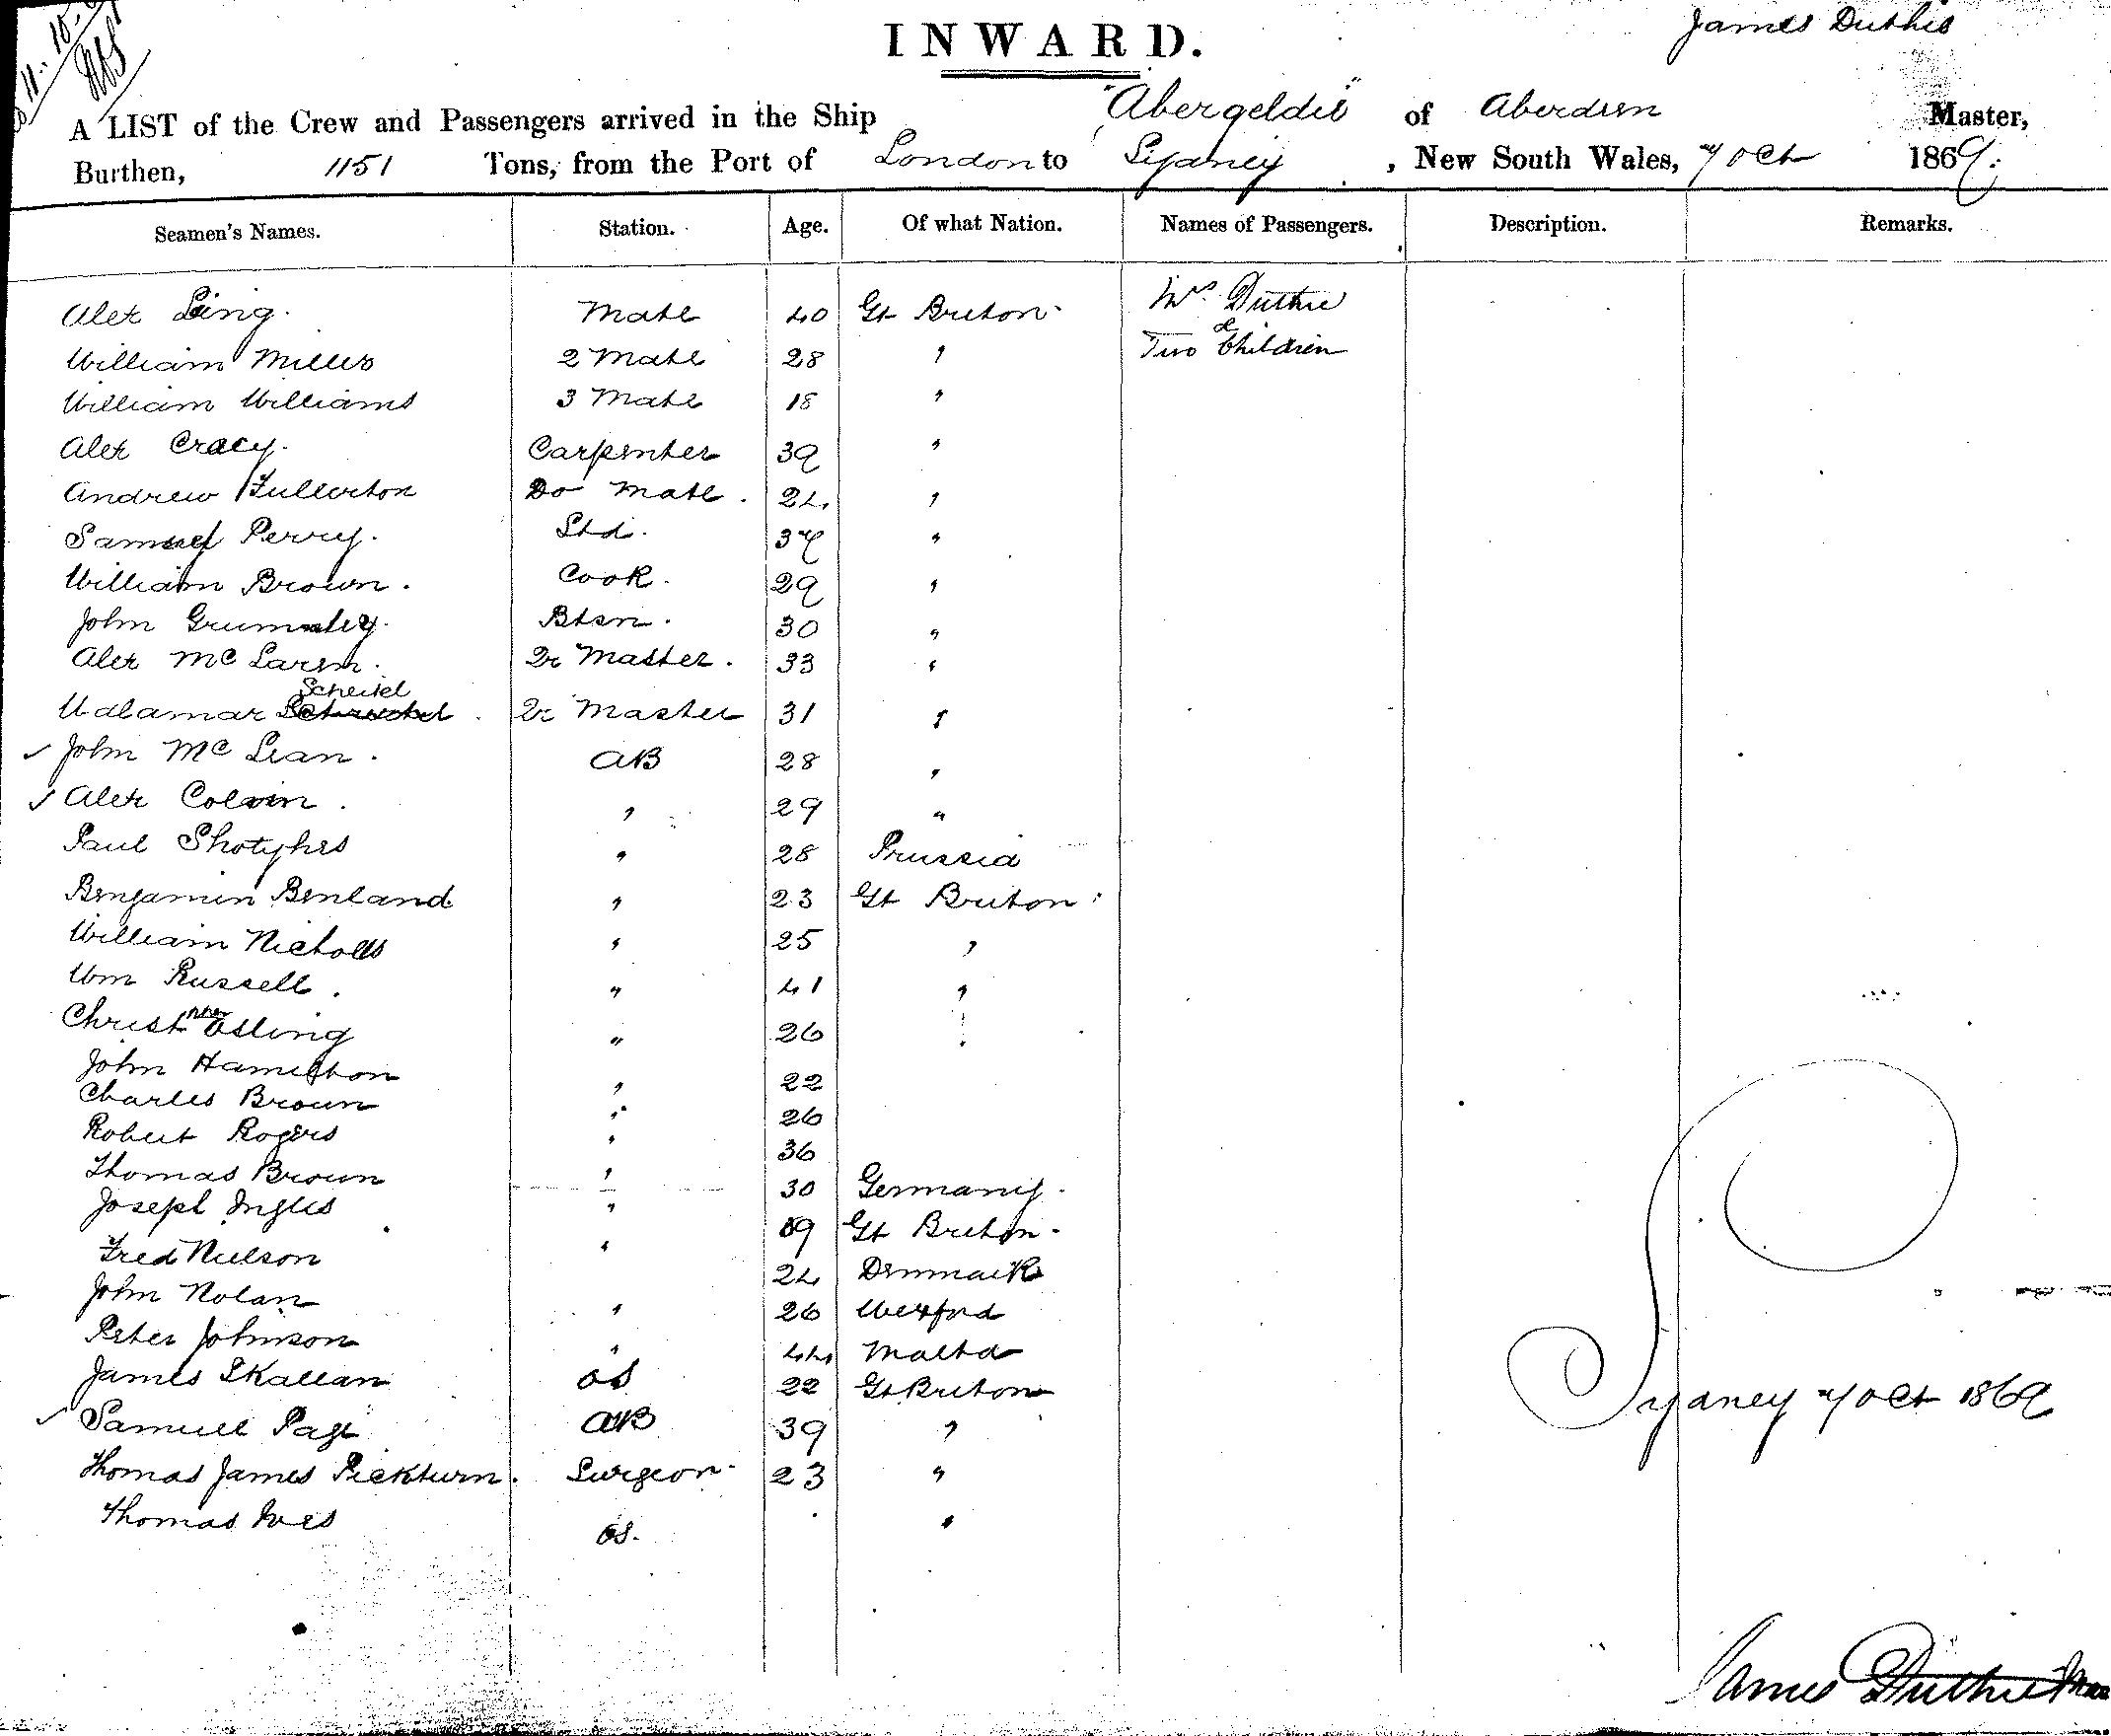 INWARD.
James Duthie
A LIST of the Crew and Passengers arrived in the Ship "Abergeldie" of Aberdeen Master,
Burthen, 1151 Tons, from the Port of London to Sydney, New South Wales, 7 Oct 1869.
Seamen's Names. Station. Age. Of what Nation. Names of Passengers. Description. Remarks.
Alex Ling. Mate 40 Gt Briton. Mrs Duthie
William Miller 2 Mate 28 " Two Children
William Williams 3 Mate 18 "
Alex Cracy. Carpenter 39 "
Andrew Fullerton Do Mate. 24 "
Samuel Perry. Std. 37 "
William Brown. Cook. 29 "
John Grumley. Btsn. 30 "
Alex McLaren. Qr Master. 33 "
Scheitel
Waldamar Qr Master 31 "
✓ John McLean. AB 28 "
✓ Alex Colvin. " 29 "
Paul " 28 Prussia
Benjamin Benland " 23 Gt Briton.
William Nicholls " 25 "
Wm Russell. " 41 "
Christopher Esling " 26
John Hamilton " 22
Charles Brown " 26
Robert Rogers " 36
Thomas Brown " 30 Germany.
Joseph Inglis " 19 Gt Briton.
Fred Neilson " 24 Denmark
John Nolan " 26 Wexford
Peter Johnson " 44 Malta
James Skallan OS 22 Gt Briton
✓ Samuel Page AB 39 "
Thomas James Pickburn. Surgeon. 23 "
Thomas Ives OS. "
Sydney 7 Oct 1869
James Duthie